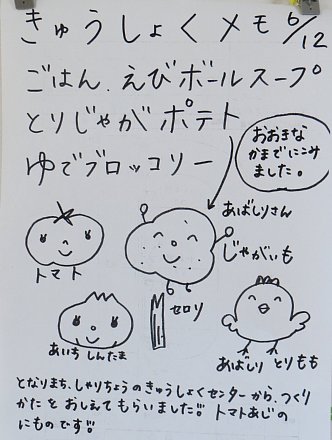 きゅうしょくメモ 6/12
ごはん、えびボールスープ
とりじゃがポテト
ゆでブロッコリー
おおきな
かまでにこみ
ました。
あばしりさん
じゃがいも
トマト
セロリ
あいち しんたま
あばしり とりもも
となりまち、しゃりちょうのきゅうしょくセンターから、つくり
かたをおしえてもらいました!! トマトあじの
にものです!!